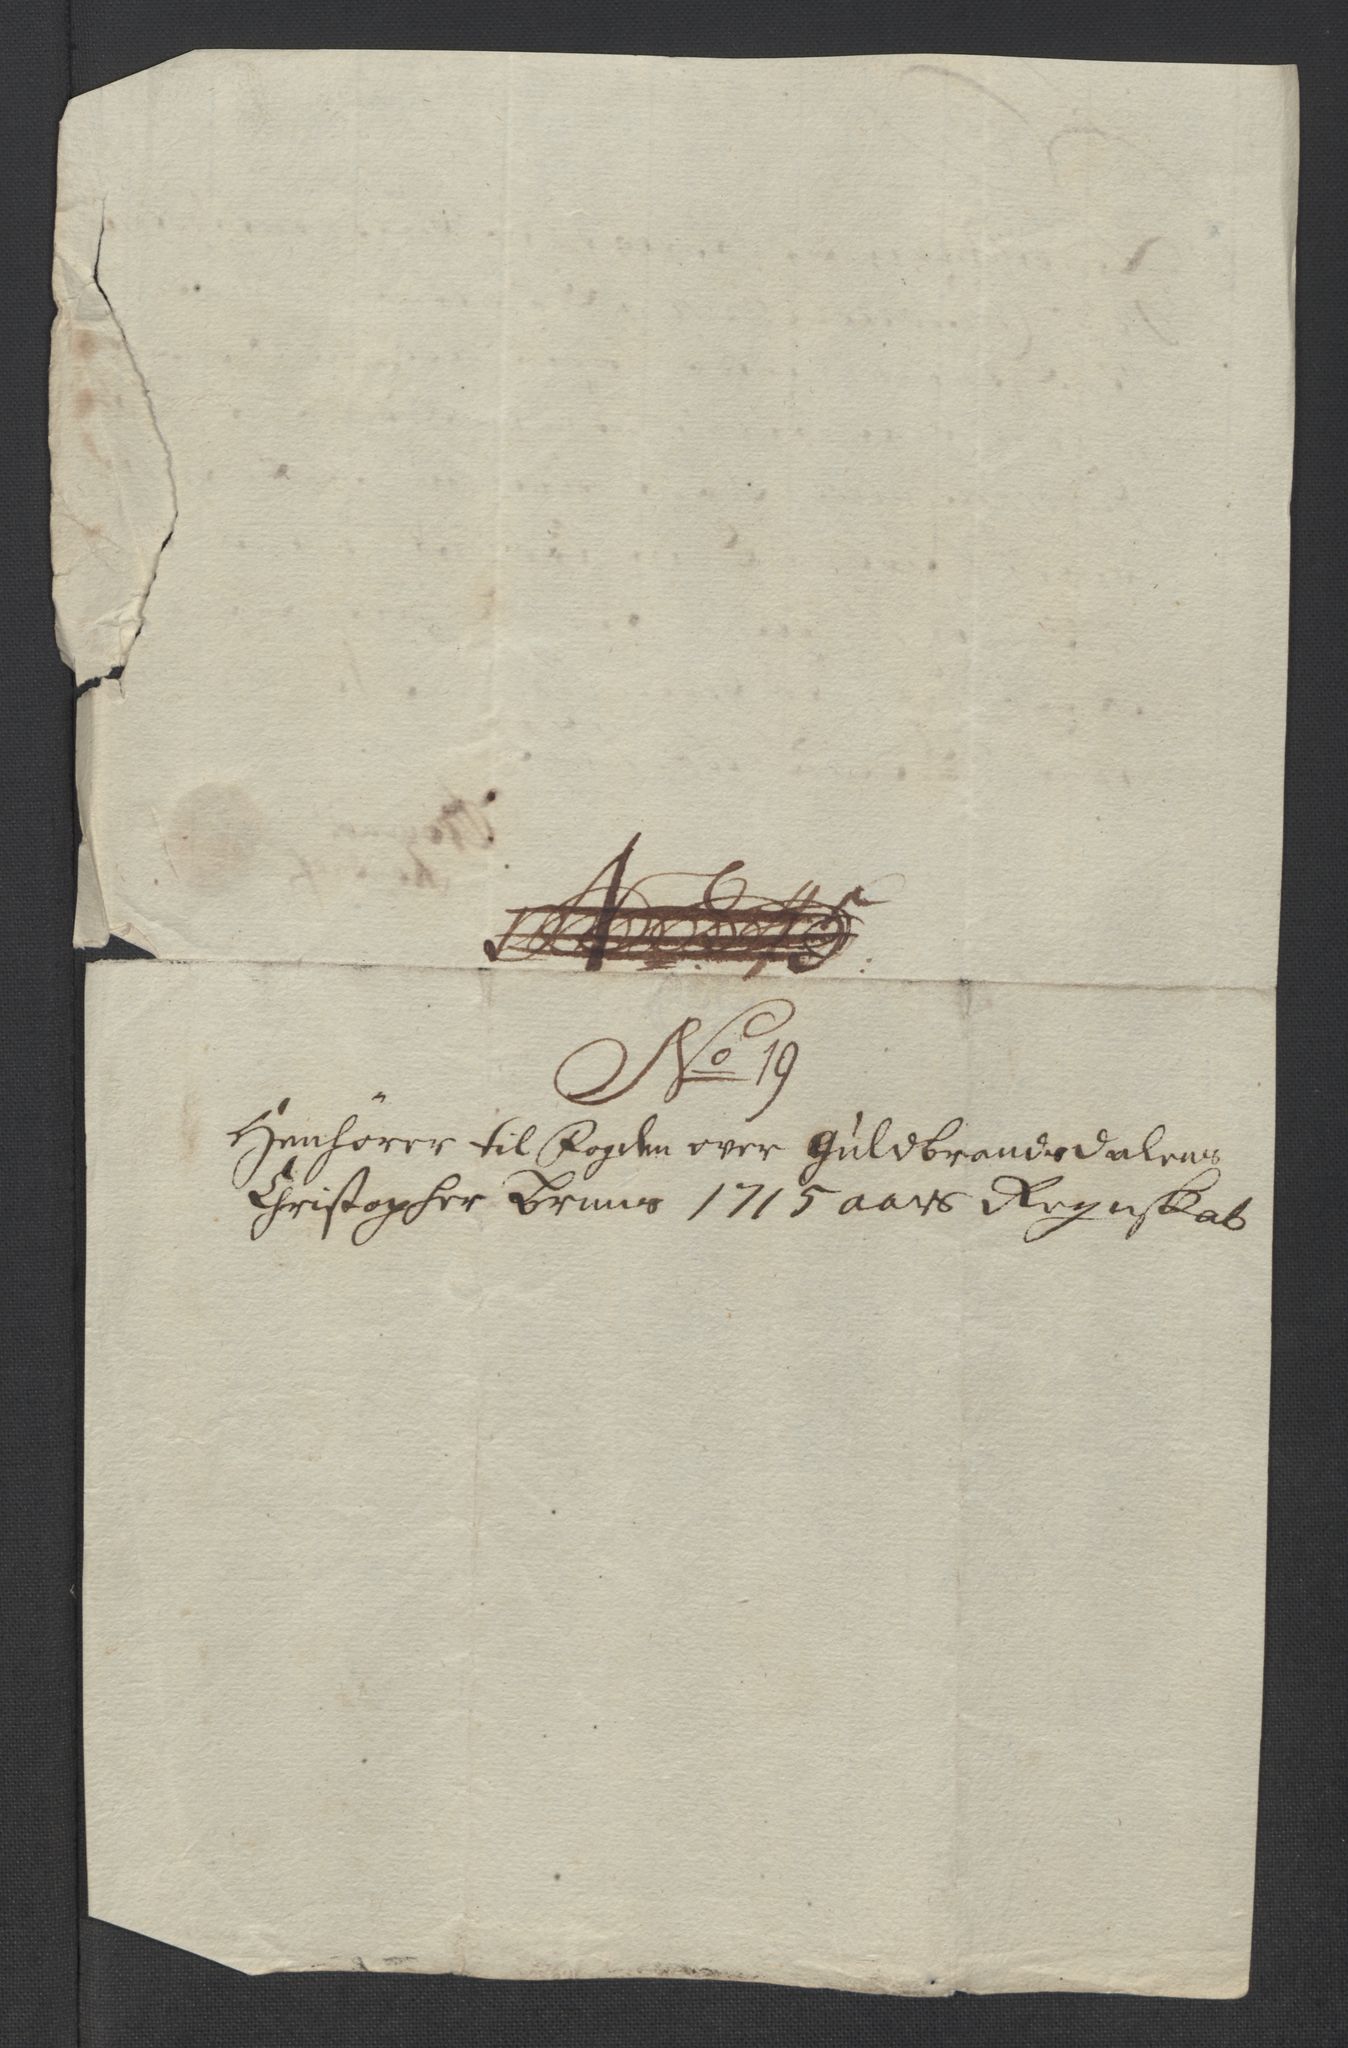 No 19
Henhörer til Fogden over Guldbrandsdalens
Christopher Bruns 1715 aars Regnskab